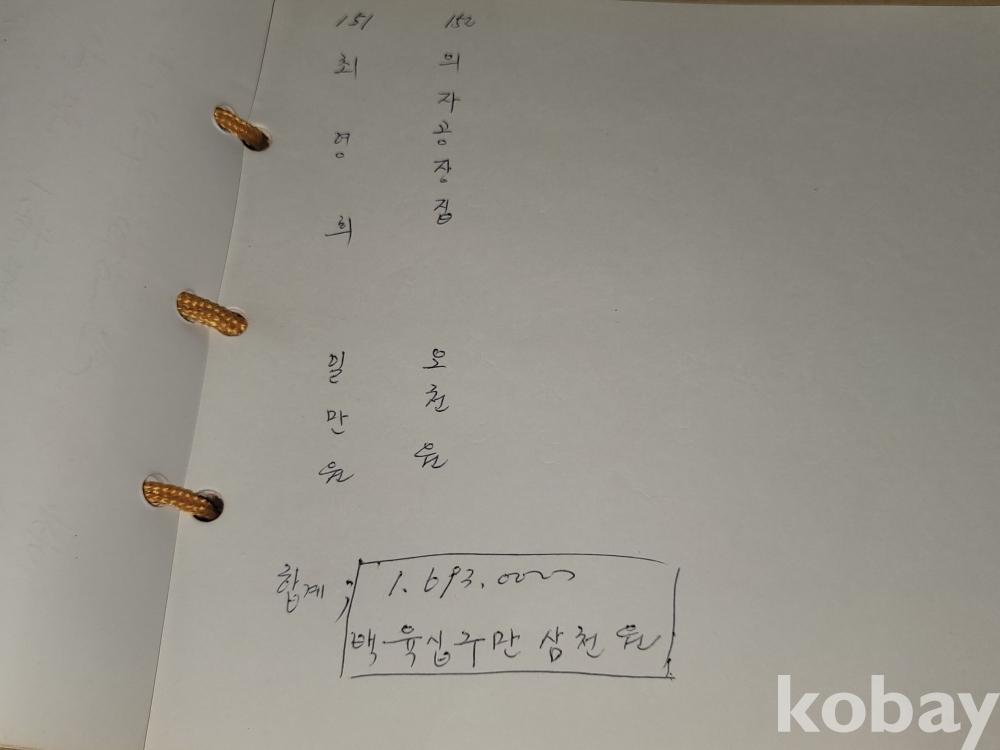 151
최영희
일만원
152
의자공장집
오천원
합계; 1.693.000
백육십구만 삼천 원
kobay